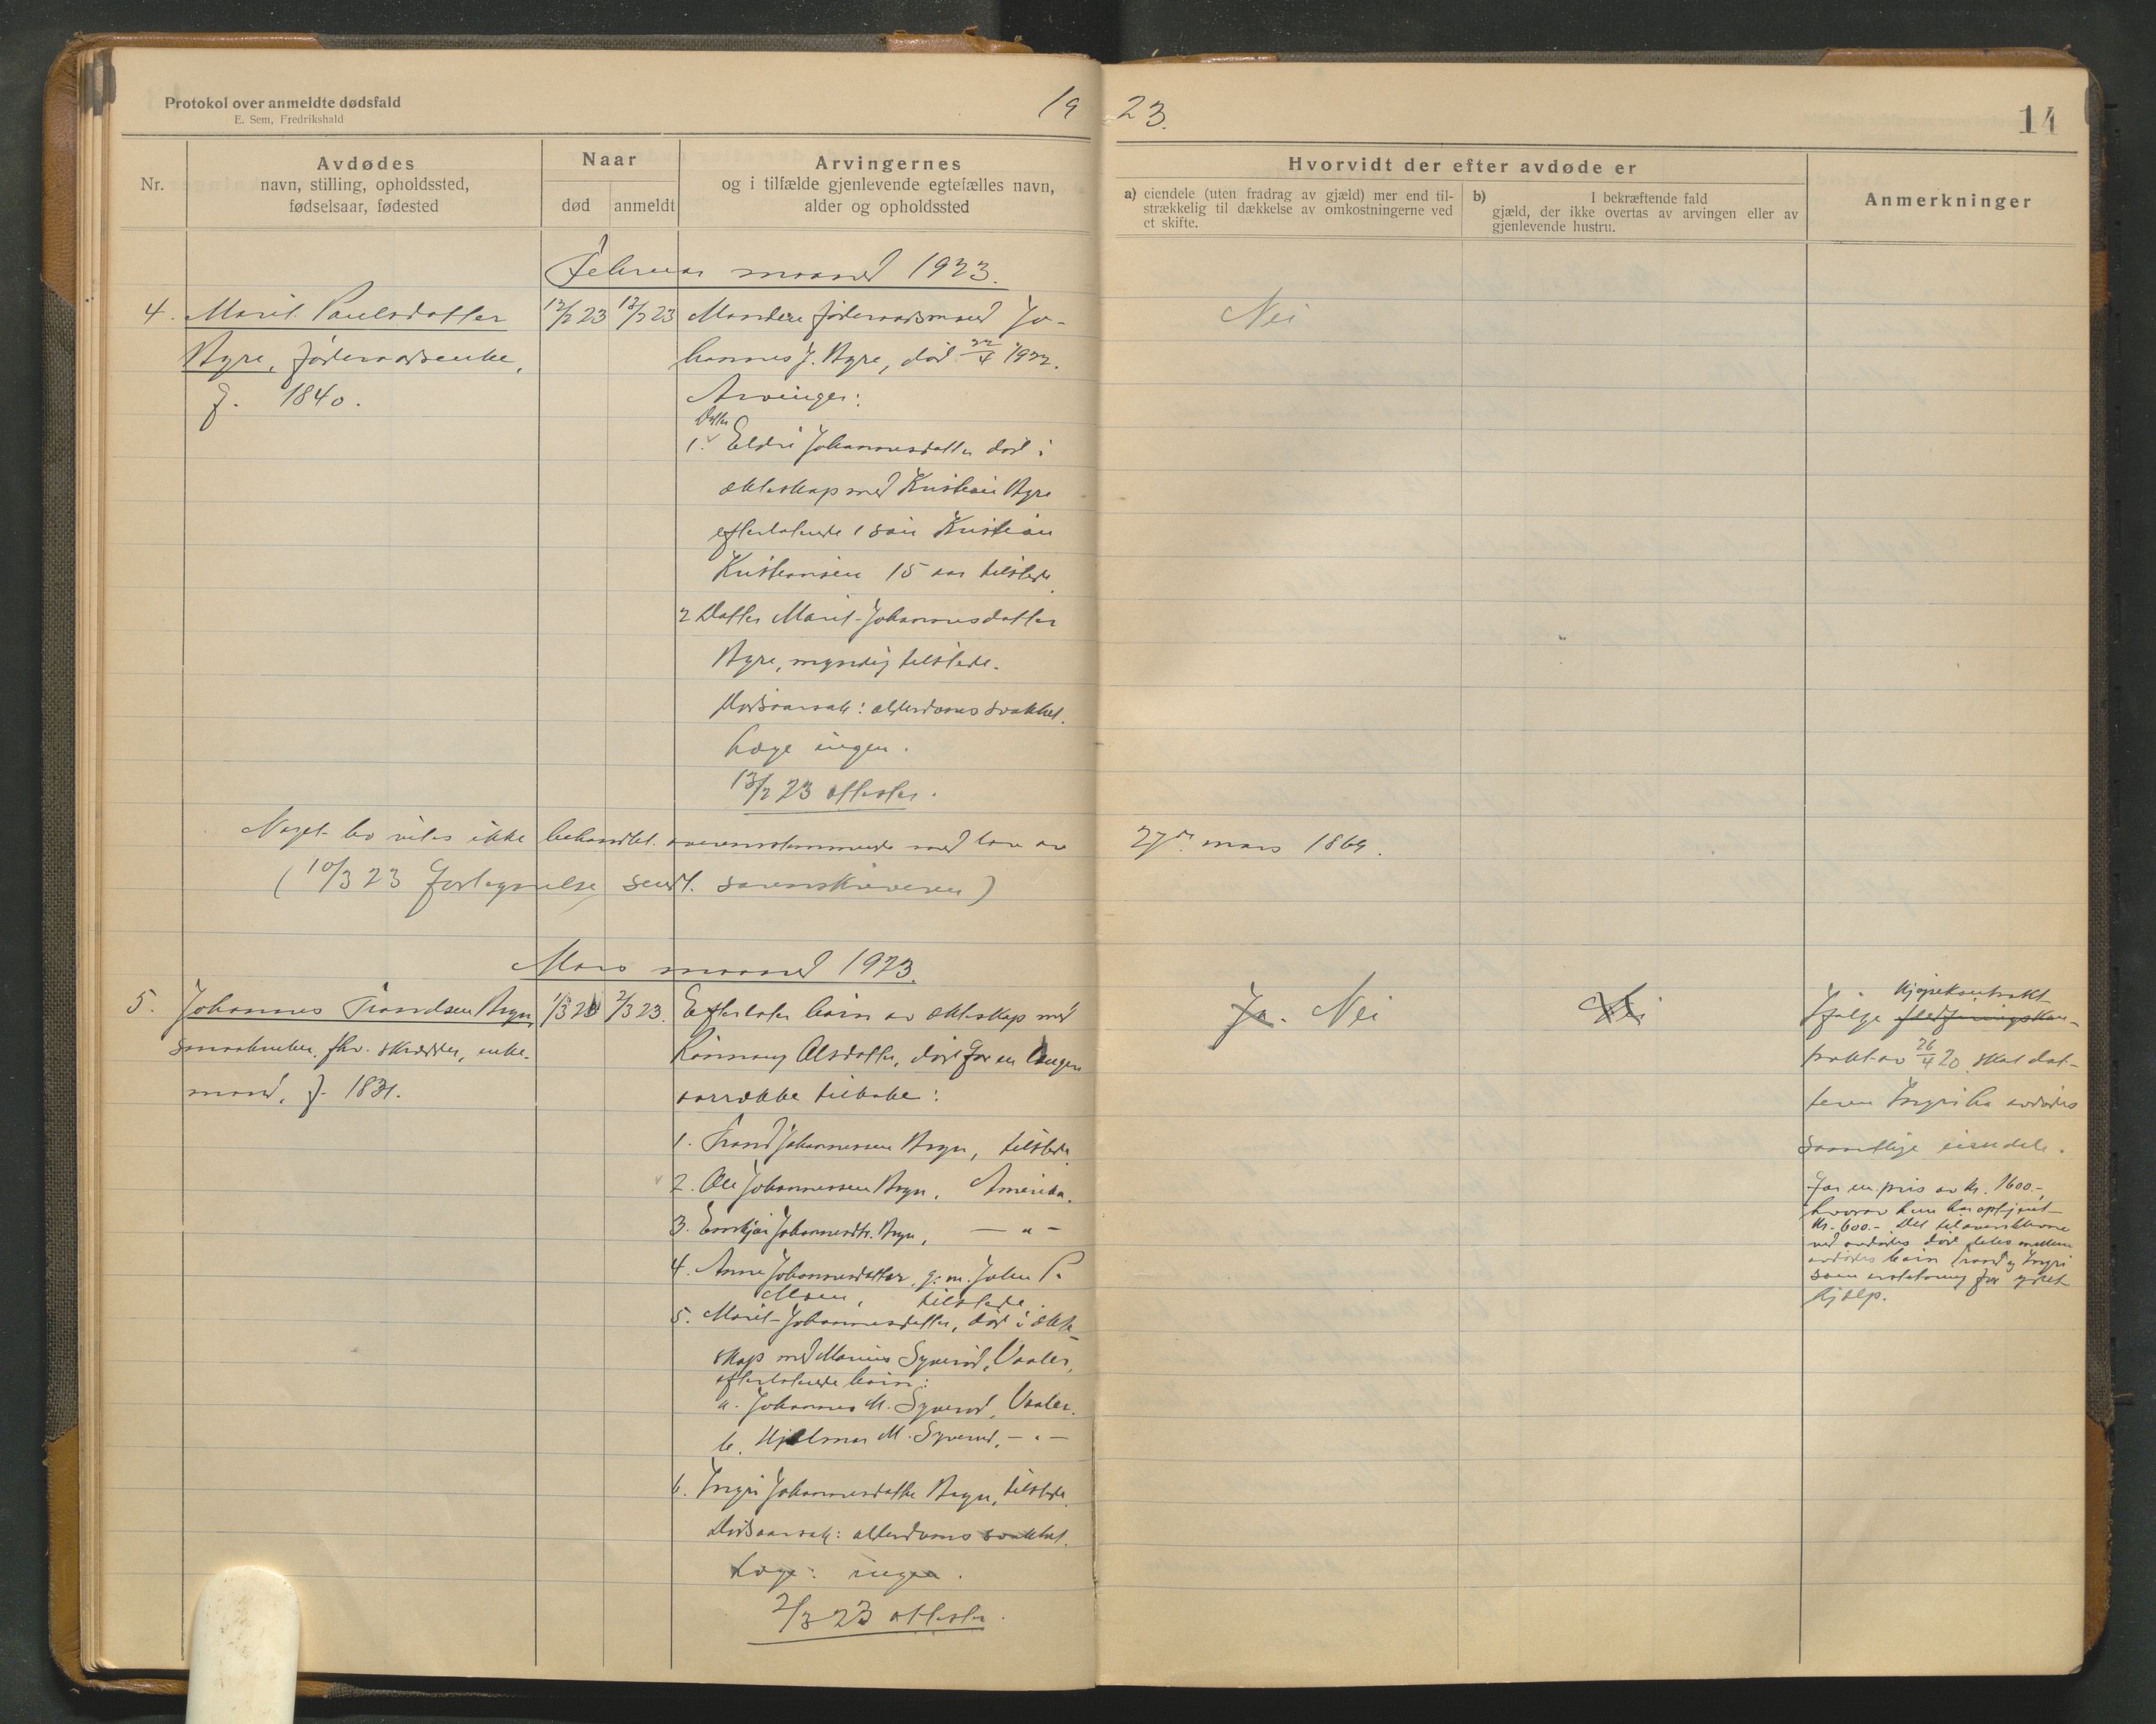 Protokol over anmeldte dødsfald
E. Sem, Fredrikshald
19 23.
14
Nr.
Avdødes
navn, stilling, opholdssted,
fødselsaar, fødested
Naar
død
anmeldt
Arvingernes
og i tilfælde gjenlevende egtefælles navn,
alder og opholdssted
Hvorvidt der efter avdøde er
a) eiendele (uten fradrag av gjæld) mer end til-
strækkelig til dækkelse av omkostningerne ved
et skifte.
b) I bekræftende fald
gjæld, der ikke overtas av arvingen eller av
gjenlevende hustru.
Anmerkninger
Februar maaned 1923.
4. Marit Paulsdatter
føderaadsenke,
f. 1840.
12/2 23
13/2 23
føderaadsmand Jo-
hannes J. død 22/4 1922.
Arvinger:
Datter
1. Eldri Johannesdatter død i
ekteskap med Kristian
efterlatende 1 søn Kristian
Kristiansen 15 aar tilstede
2 Datter Marit Johannesdatter
myndig tilstede.
Dødsaarsak: alderdomssvakhet.
Læge ingen.
13/2 23 attester.
Nei
Noget bo vites ikke behandlet overensstemmende med lov av 27de mars 1869.
(10/3 23 fortegnelse sendt sorenskriveren)
Mars maaned 1923.
5. Johannes Trondsen Bryn
smaabruker, fhv. skrædder, enke-
mand, f. 1831.
1/3 23
2/3 23.
Efterlater barn av ekteskap med
Rønnaug Olsdatter, død for en lang
aarrække tilbake:
1. Trond Johannessen Bryn, tilstede.
2. Ole Johannessen Bryn, Amerika.
3. Johannesdtr. Bryn, — " —
4. Anne Johannesdatter, g. m. John P.
Moen, tilstede.
5. Marit Johannesdatter, død i ekte-
skap med Marius Syverud, Vaaler,
efterlatende barn:
a. Johannes M. Syverud, Vaaler.
b. Hjalmar M. Syverud, — " —
6. Ingri Johannesdatter Bryn, tilstede.
Dødsaarsak: alderdomssvakhet.
Læge: ingen.
2/3 23 attester.
Ja. Nei
Nei
kjøpekontrakt
Ifølge
trakt av 26/4 20 skal dat-
teren Ingri ha avdødes
samtlige eiendele.
For en pris av kr. 1600.-,
hvorav hun har optjent
kr. 600.- Det tiloversblevne
ved avdødes død deles mellem
avdødes barn Trond og Ingri
som erstatning for ydet
hjælp.